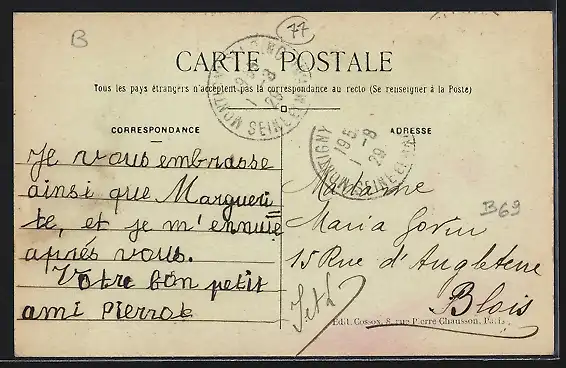 B
77
CARTE POSTALE
Tous les pays étrangers n'acceptent pas la correspondance au recto (Se renseigner à la Poste)
CORRESPONDANCE
Je vous embrasse
ainsi que Margueri
te, et je m'ennuie
après vous.
Votre bon petit
ami Pierrot
ADRESSE
Madame
Maria Gorin
15 Rue d'Angleterre
Blois
B69
Edit. Cossox, 8, rue Pierre Chausson, Paris